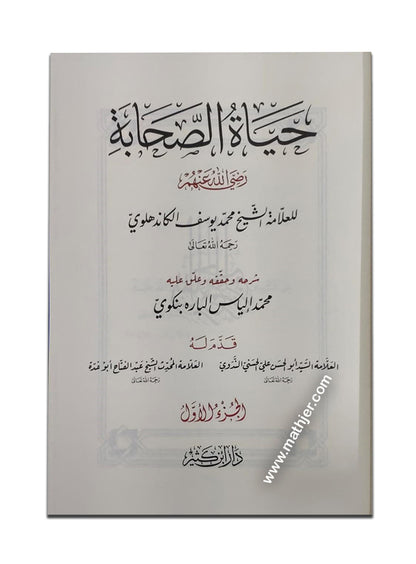 حَيَاةُ الصَّحَابَةِ
رَضِيَ اللهُ عَنْهُم
للعلّامة الشّيخ محمّد يوسف الكاندهلوي
رَحِمَهُ اللهُ تَعَالَىٰ
شرحه وحقّقه وعلّق عليه
محمّد إلياس الباره بنكوي
قَدَّمَ لَهُ
العلّامة السّيّد أبو الحسن علي الحسني النّدوي
رَحِمَهُ اللهُ تَعَالَىٰ
العلّامة المحدّث الشّيخ عبد الفتّاح أبو غدة
رَحِمَهُ اللهُ تَعَالَىٰ
الجُزْءُ الأَوَّلُ
دَارُ ابْنِ كَثِيرٍ
www.mathjer.com